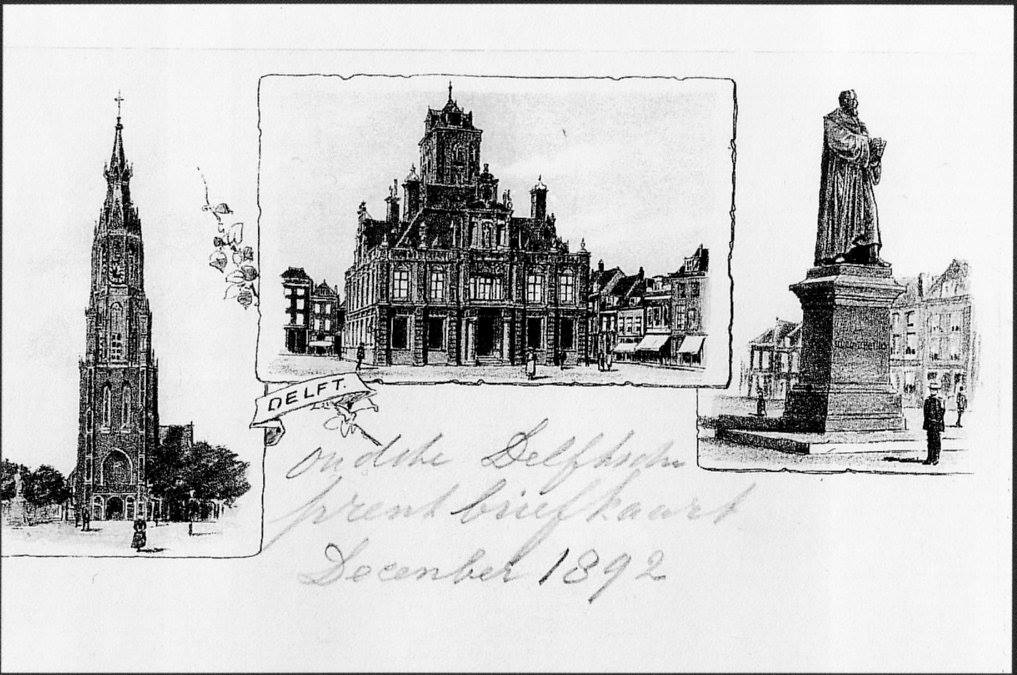 DELFT.
oudste Delftsche
prent briefkaart
December 1892